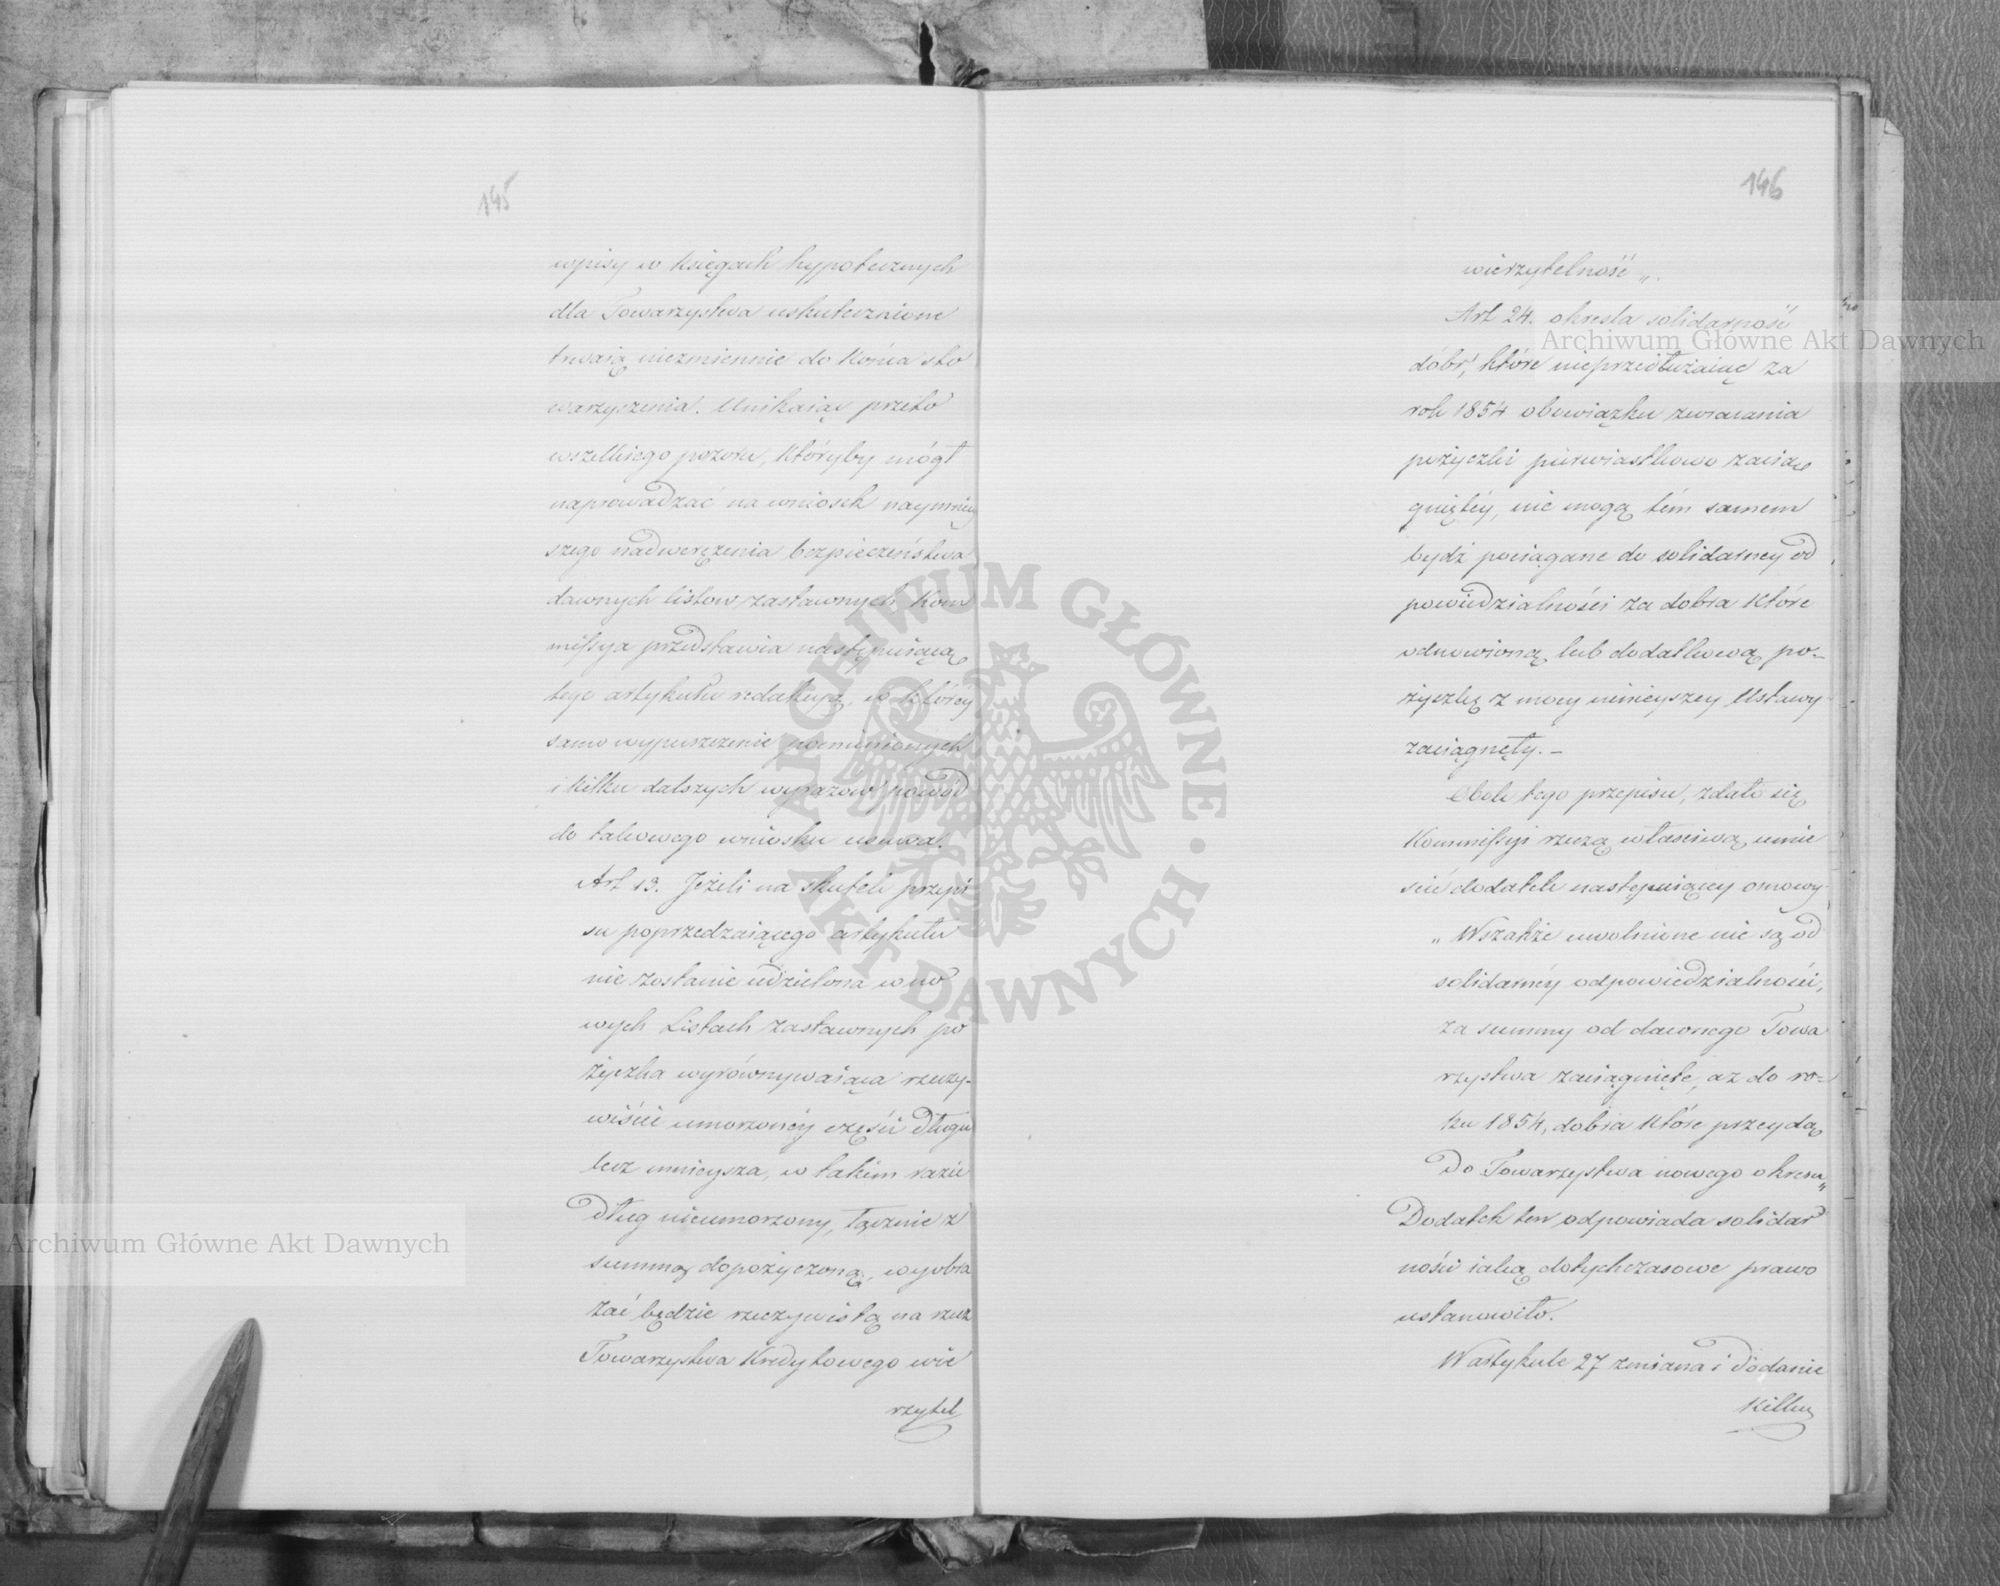 145
wpisy w Księgach hypotecznych
dla Towarzystwa uskutecznione
trwaią niezmiennie do Końca sto
warzyszenia. Unikaiąc przeto
wszelkiego pozoru, któryby mógł
naprowadzać na wniosek naymniey
szego nadwerężenia bezpieczeństwa
dawnych listow zastawnych Kom
missya przedstawia następuiącą
tego artykułu redakcyą, w któréy
samo wypuszczenie pomienionych
i kilku dalszych wyrazow powód
do takowego wniosku usuwa.
Art 13. Jeżeli na skutek przepi
su poprzedzaiącego artykułu
nie zostanie udzielona w no
wych Listach zastawnych po
życzka wyrównywaiąca rzeczy-
wiście umorzonéy części długu
lecz mnieysza, w takim razie
dług nieumorzony, łącznie z
summą dopożyczoną, wyobra
żać będzie rzeczywistą na rzecz
Towarzystwa Kredytowego wie
rzytel
146
wierzytelność„.
Art 24. określa solidarność
dóbr, które nieprzedłużaiąc za
rok 1854 obowiązku zwracania
pożyczki pierwiastkowo zacią
gniętéy, nie mogą tém samem
bydź pociągane do solidarney od
powiedzialności za dobra które
odnowioną lub dodatkową po-
życzkę z mocy ninieyszey Ustawy
zaciągnęły.-
Obok tego przepisu, zdało się
Kommissyi rzeczą właściwą umie
ścić dodatek następuiący osnowy
„Wszakże uwolnione nie są od
solidarnéy odpowiedzialności,
za summy od dawnego Towa
rzystwa zaciągnięte, aż do ro-
ku 1854, dobra które przeydą
do Towarzystwa nowego okresu„
Dodatek ten odpowiada solidar
ności iaką dotychczasowe prawo
ustanowiło.
W artykule 27 zmiana i dodanie
Kilku
Archiwum Główne Akt Dawnych
Archiwum Główne Akt Dawnych
ARCHIWUM GŁÓWNE · AKT DAWNYCH ·